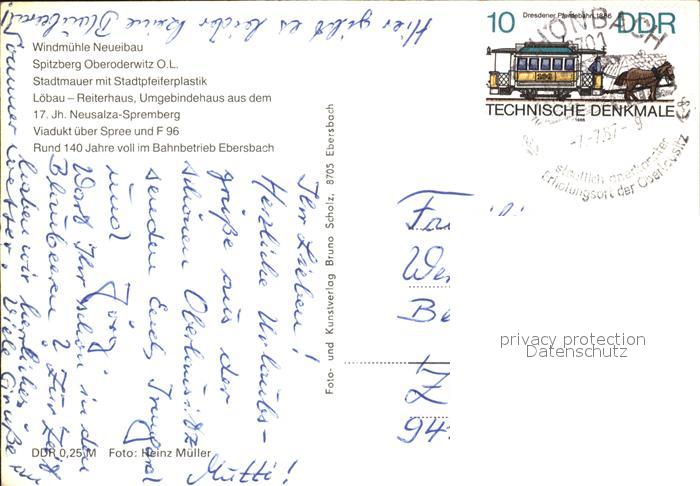 Hier gibt es leider keine Blaubeeren!
Windmühle Neueibau
Spitzberg Oberoderwitz O.L.
Stadtmauer mit Stadtpfeiferplastik
Löbau – Reiterhaus, Umgebindehaus aus dem
17. Jh. Neusalza-Spremberg
Viadukt über Spree und F 96
Rund 140 Jahre voll im Bahnbetrieb Ebersbach
Ihr Lieben!
Herzliche Urlaubs-
grüße aus der
schönen Oberlausitz
senden Euch Irmgard
und Jörg
Wart Ihr schon in den
Blaubeeren? Zur Zeit
haben wir herrliches
Sommerwetter. Viele Grüße an
Mutti!
DDR 0,25 M Foto: Heinz Müller
Foto- und Kunstverlag Bruno Scholz, 8705 Ebersbach
Dresdener Pferdebahn 1886
10 DDR
TECHNISCHE DENKMALE
1986
-7.7.87-9
staatlich anerkannter
Erholungsort der Oberlausitz
Fa
We
Be
Z
94
privacy protection
Datenschutz